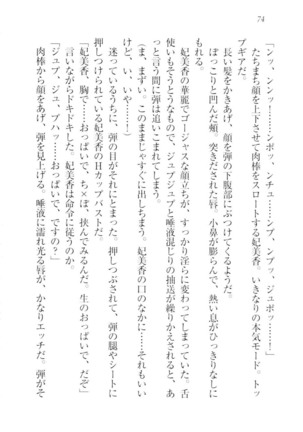 74
「ンッ、ンンッ……！　ンポッ、ンチュ……ンプ、ンプッ、ジュポッ………！」
たちまち顔を上下させて肉棒をスロートする妃美香。いきなりの本気モード。トッ
プギアだ。
長い髪をかきあげ、顔を弾の下腹部にぶつけてくるようだ。
ぽっこりと凹んだ頰。突きだされた唇。小鼻が膨らんで、熱い息がひっきりなしに
もれる。
妃美香の華麗でゴージャスな顔立ちが、すっかり淫らに変わってしまっていた。舌
使いもそうとうなもので、ジュブジュブと唾液混じりの抽送が繰りかえされると、あ
っと言う間に弾は追いこまれてしまう。
（ま、まずい。このままじゃすぐに出しちまう。妃美香の口のなかに……それもいい
けど、い、いや……！）
迷っているうちに、弾の目がそれにとまった。押しつぶされて、弾の腿やシートに
押しつけられている妃美香のHカップバストだ。
「妃美香、胸で……おっぱいで、ち×ぽ、挟んでみるんだ。生のおっぱいで、だぞ」
言いながらドキドキした。妃美香は命令に従うのか。
「ジュプ、ジュポッ……ハァ……おっぱいで、ですの？」
肉棒から顔をあげ、弾を見上げる。唾液に濡れ光る唇が、かなりエッチだ。弾がそ